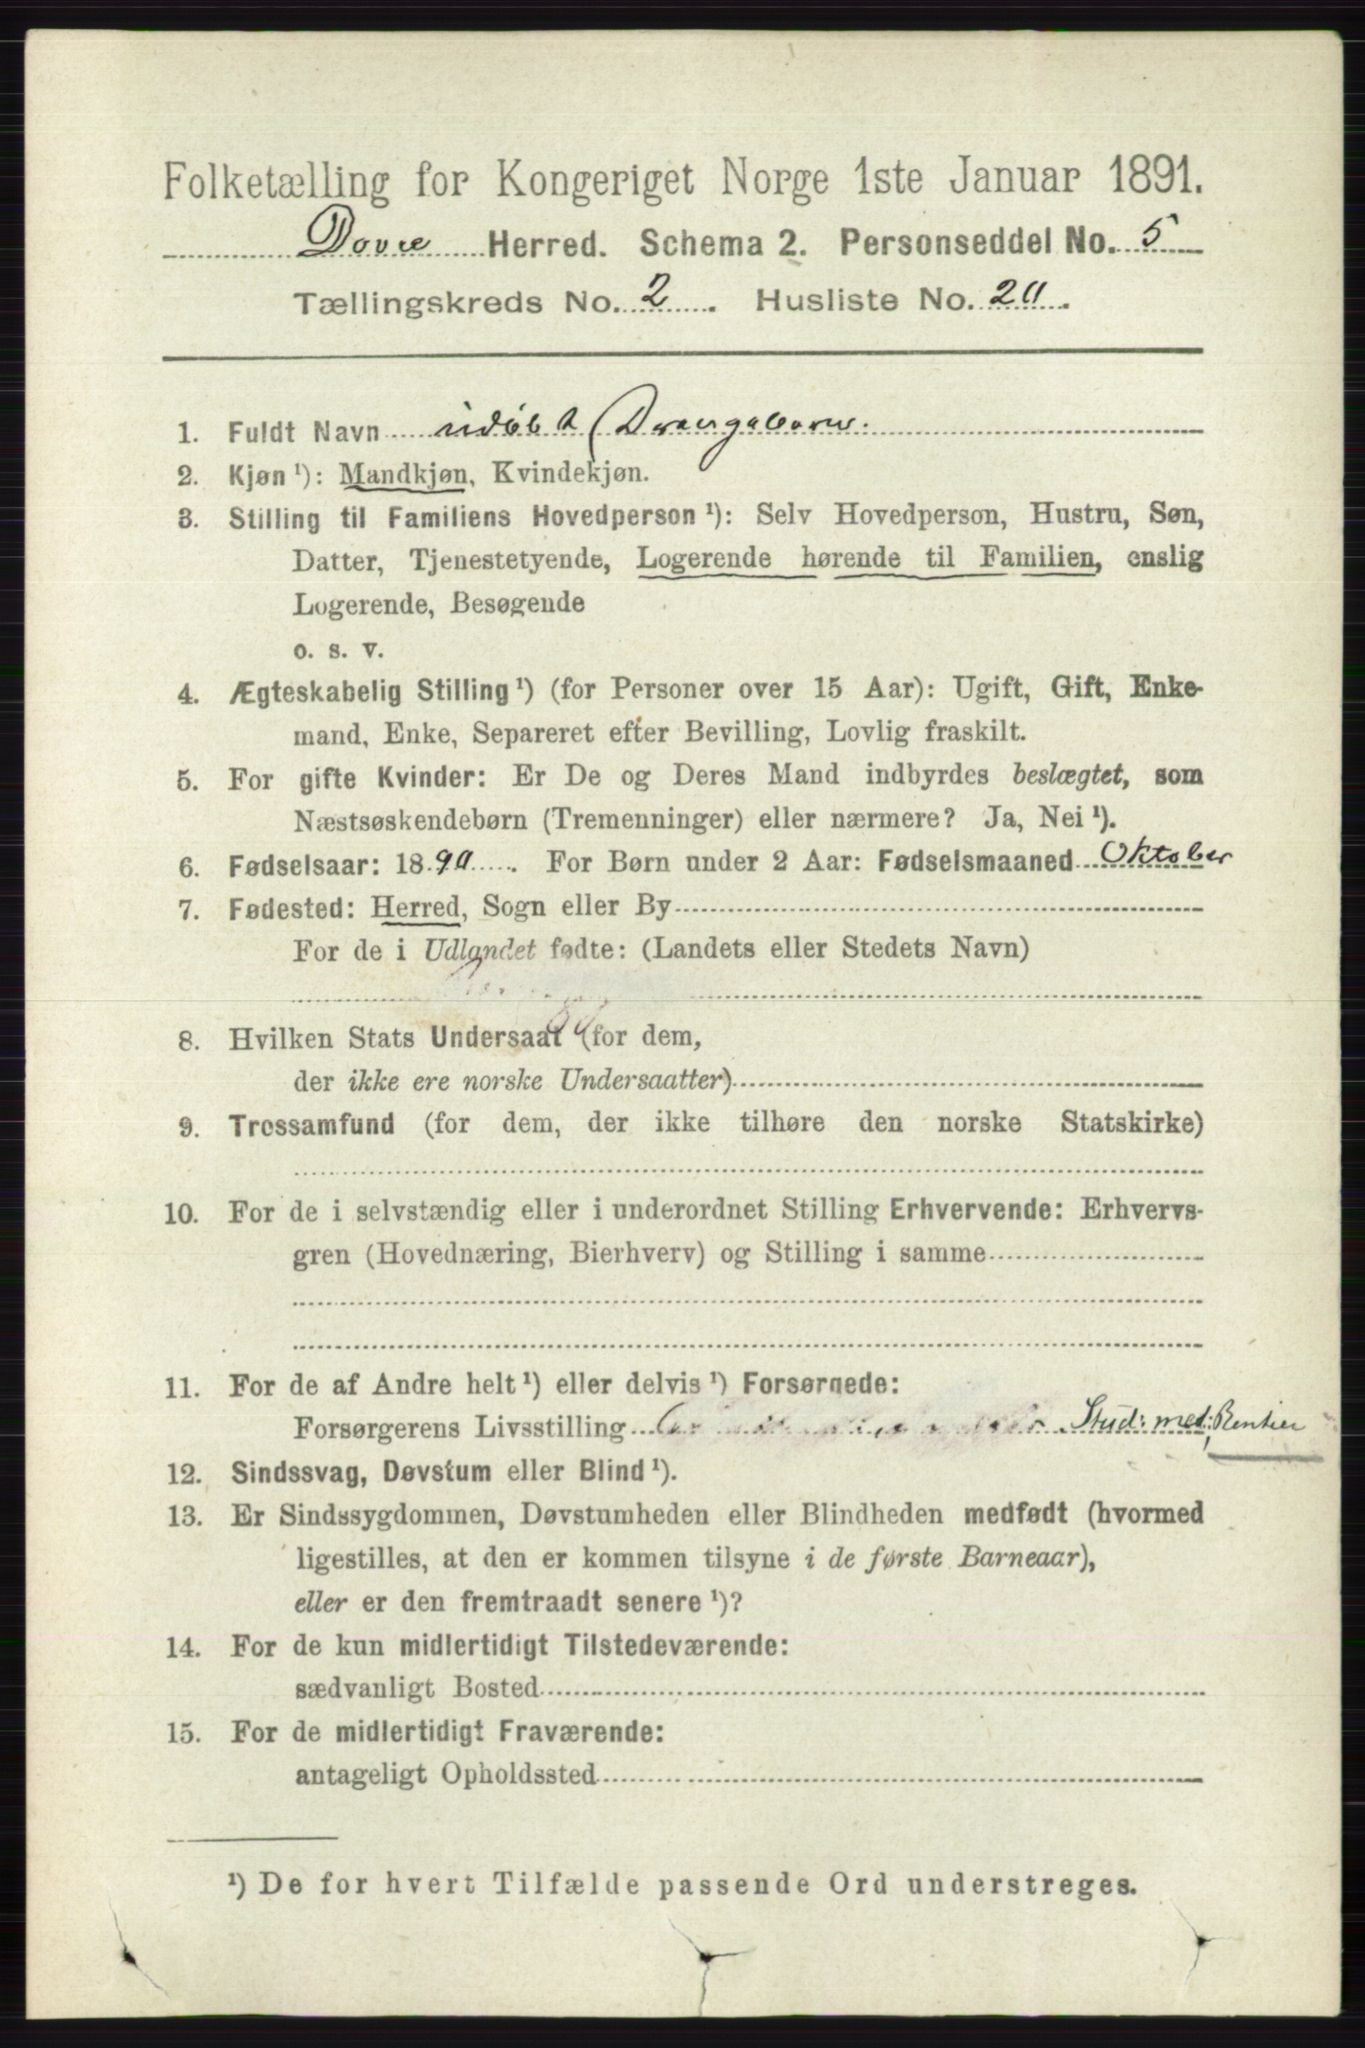 Folketælling for Kongeriget Norge 1ste Januar 1891.
Dovre Herred. Schema 2. Personseddel No. 5
Tællingskreds No. 2. Husliste No. 20.
1. Fuldt Navn udøbt Drengebarn.
2. Kjøn ¹): Mandkjøn, Kvindekjøn.
3. Stilling til Familiens Hovedperson ¹): Selv Hovedperson, Hustru, Søn,
Datter, Tjenestetyende, Logerende hørende til Familien, enslig
Logerende, Besøgende
o. s. v.
4. Ægteskabelig Stilling ¹) (for Personer over 15 Aar): Ugift, Gift, Enke-
mand, Enke, Separeret efter Bevilling, Lovlig fraskilt.
5. For gifte Kvinder: Er De og Deres Mand indbyrdes beslægtet, som
Næstsøskendebørn (Tremenninger) eller nærmere? Ja, Nei ¹).
6. Fødselsaar: 1890. For Børn under 2 Aar: Fødselsmaaned Oktober
7. Fødested: Herred, Sogn eller By
For de i Udlandet fødte: (Landets eller Stedets Navn)
8. Hvilken Stats Undersaat (for dem,
der ikke ere norske Undersaatter)
9. Trossamfund (for dem, der ikke tilhøre den norske Statskirke)
10. For de i selvstændig eller i underordnet Stilling Erhvervende: Erhvervs-
gren (Hovednæring, Bierhverv) og Stilling i samme
11. For de af Andre helt ¹) eller delvis ¹) Forsørgede:
Forsørgerens Livsstilling Stud: med: Rentier
12. Sindssvag, Døvstum eller Blind ¹).
13. Er Sindssygdommen, Døvstumheden eller Blindheden medfødt (hvormed
ligestilles, at den er kommen tilsyne i de første Barneaar),
eller er den fremtraadt senere ¹)?
14. For de kun midlertidigt Tilstedeværende:
sædvanligt Bosted
15. For de midlertidigt Fraværende:
antageligt Opholdssted
¹) De for hvert Tilfælde passende Ord understreges.